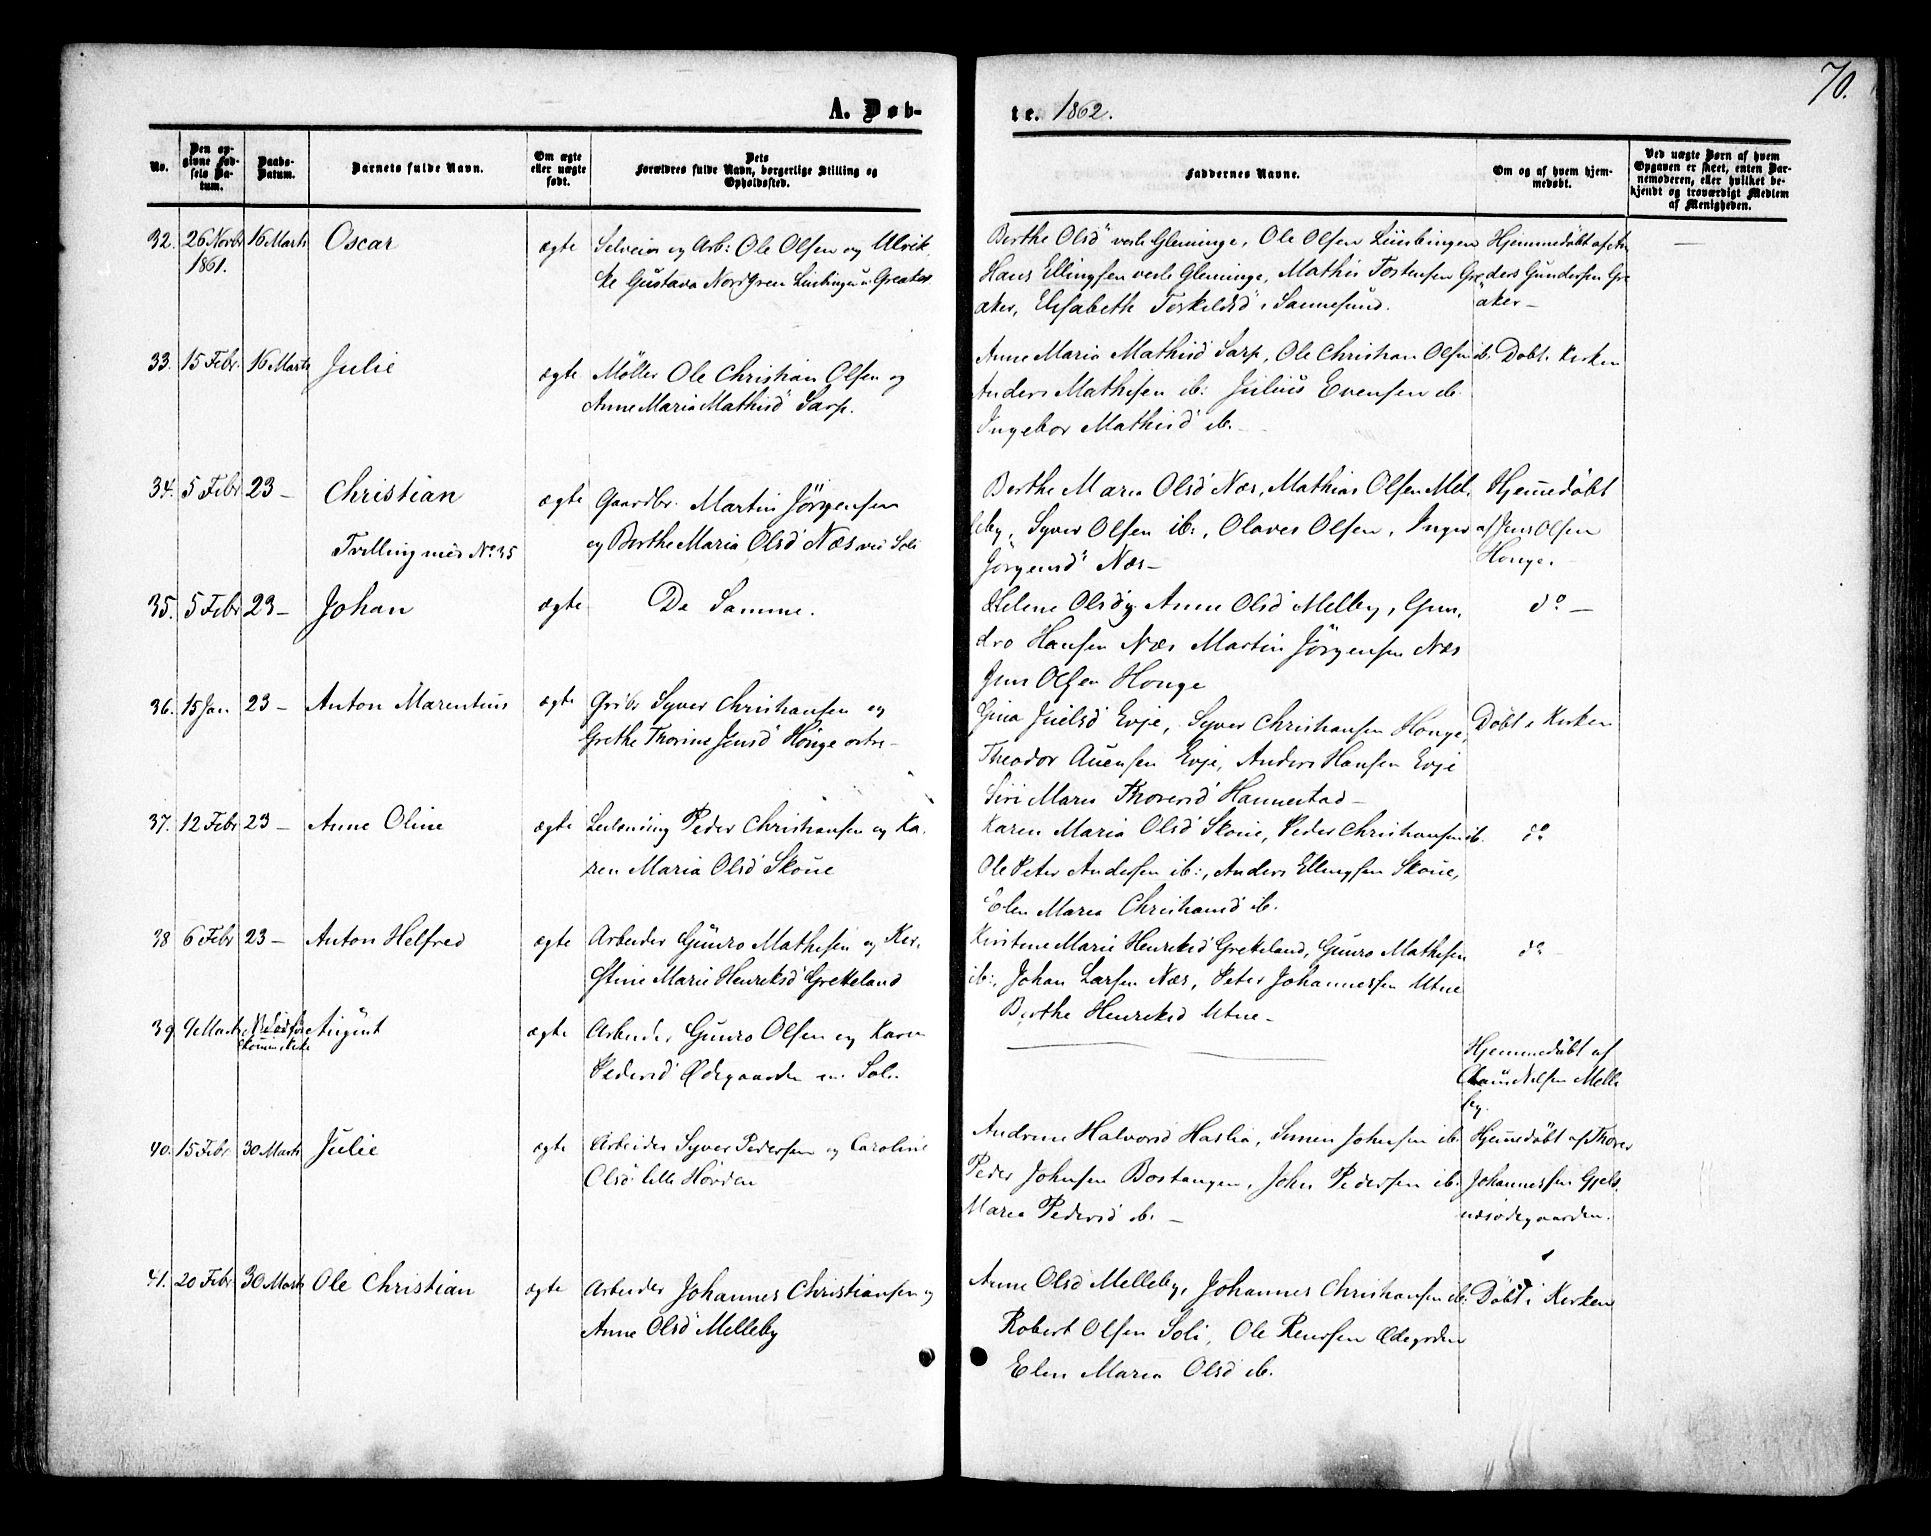 70.
A. Døb-
te. 1862.
No.
Den opgivne Fødsels Datum.
Daabs-Datum.
Barnets fulde Navn.
Om ægte eller uægte født.
Dets Forældres fulde Navn, borgerlige Stilling og Opholdssted.
Faddernes Navne.
Om og af hvem hjemmedøbt.
Ved uægte Børn af hvem Opgaven er skeet, enten Barnemoderen, eller hvilket bekjendt og troværdigt Medlem af Menigheden.
32. 26 Novbr 1861. 16 Marts Oscar ægte
Selveier og Arb: Ole Olsen og Ulrik
ke Gustava Nordgren Greaker
Berthe Olsd vestre Gleminge, Ole Olsen
Hans Ellingsen vestre Gleminge, Mathis Tostensen Gre
aker, Elisabeth Torkildsd Sannesund.
Hjemmedøbt af An
ders Gundersen Gre
aker —
33. 15 Febr. 16 Marts Julie ægte
Møller Ole Christian Olsen og
Anne Maria Mathisd Sarp.
Anne Maria Mathisd Sarp, Ole Christian Olsen ib.
Anders Mathisen ib: Julius Evensen ib.
Ingebor Mathisd ib.
Døbt i Kirken
34. 5 Febr 23 — Christian ægte
Tvilling med No 35
Gaardbr. Martin Jörgensen
og Berthe Maria Olsd Næs ved Soli
Berthe Maria Olsd Næs, Mathias Olsen Mel
leby, Syver Olsen ib:, Olaves Olsen, Inger
Jörgensd Næs —
Hjemmedøbt
af Jens Olsen
Honge.
35. 5 Febr 23 — Johan ægte
De Samme.
Helene Olsd og Anne Olsd Melleby, Gun
dro Hansen Næs Martin Jörgensen Næs
Jens Olsen Honge
do —
36. 15 Jan 23 — Anton Marentius ægte
Grdbr Syver Christiansen og
Grethe Thorine Jensd Honge østre —
Gina Juelsd Evje, Syver Christiansen Honge,
Theodor Auensen Evje, Anders Hansen Evje
Siri Maria Thoresd Hannestad —
Døbt i Kirken
37. 12 Febr 23 — Anne Oline ægte
Leilænding Peder Christiansen og Ka
ren Maria Olsd Skoue
Karen Maria Olsd Skoue, Peder Christiansen ib.
Ole Peter Andersen ib:, Anders Ellingsen Skoue,
Elen Maria Christiansd ib.
do
38 6 Febr 23 — Anton Helfred ægte
Arbeider Gunro Mathisen og Kir
stine Marie Henriksd Grekeland
Kirstine Marie Henriksd Grekeland, Gunro Mathisen
ib:, Johan Larsen Næs, Peter Johannessen Utne
Berthe Henriksd Utne —
do
39. 9 Marts August ægte
Arbeider Gunro Olsen og Karen
Pedersd Ødegaarden Soli
Hjemmedøbt af
Nilsen Melle
by.
40. 15 Febr 30 Marts Julie ægte
Arbeider Syver Pedersen og Caroline
Olsd lille Horden
Andrine Halvorsd Haslia, Simen Johnsen ib.
Peder Johnsen Bostangen, John Pedersen ib:
Maria Pedersd ib. —
Hjemmedøbt af Thorer
Johannessen Gjels
ødegaarden.
41. 20 Febr 30 Marts Ole Christian ægte
Arbeider Johannes Christiansen og
Anne Olsd Melleby
Anne Olsd Melleby, Johannes Christiansen ib:
Robert Olsen Soli, Ole Ødegrden
Elen Maria Olsd ib.
Døbt i Kirken